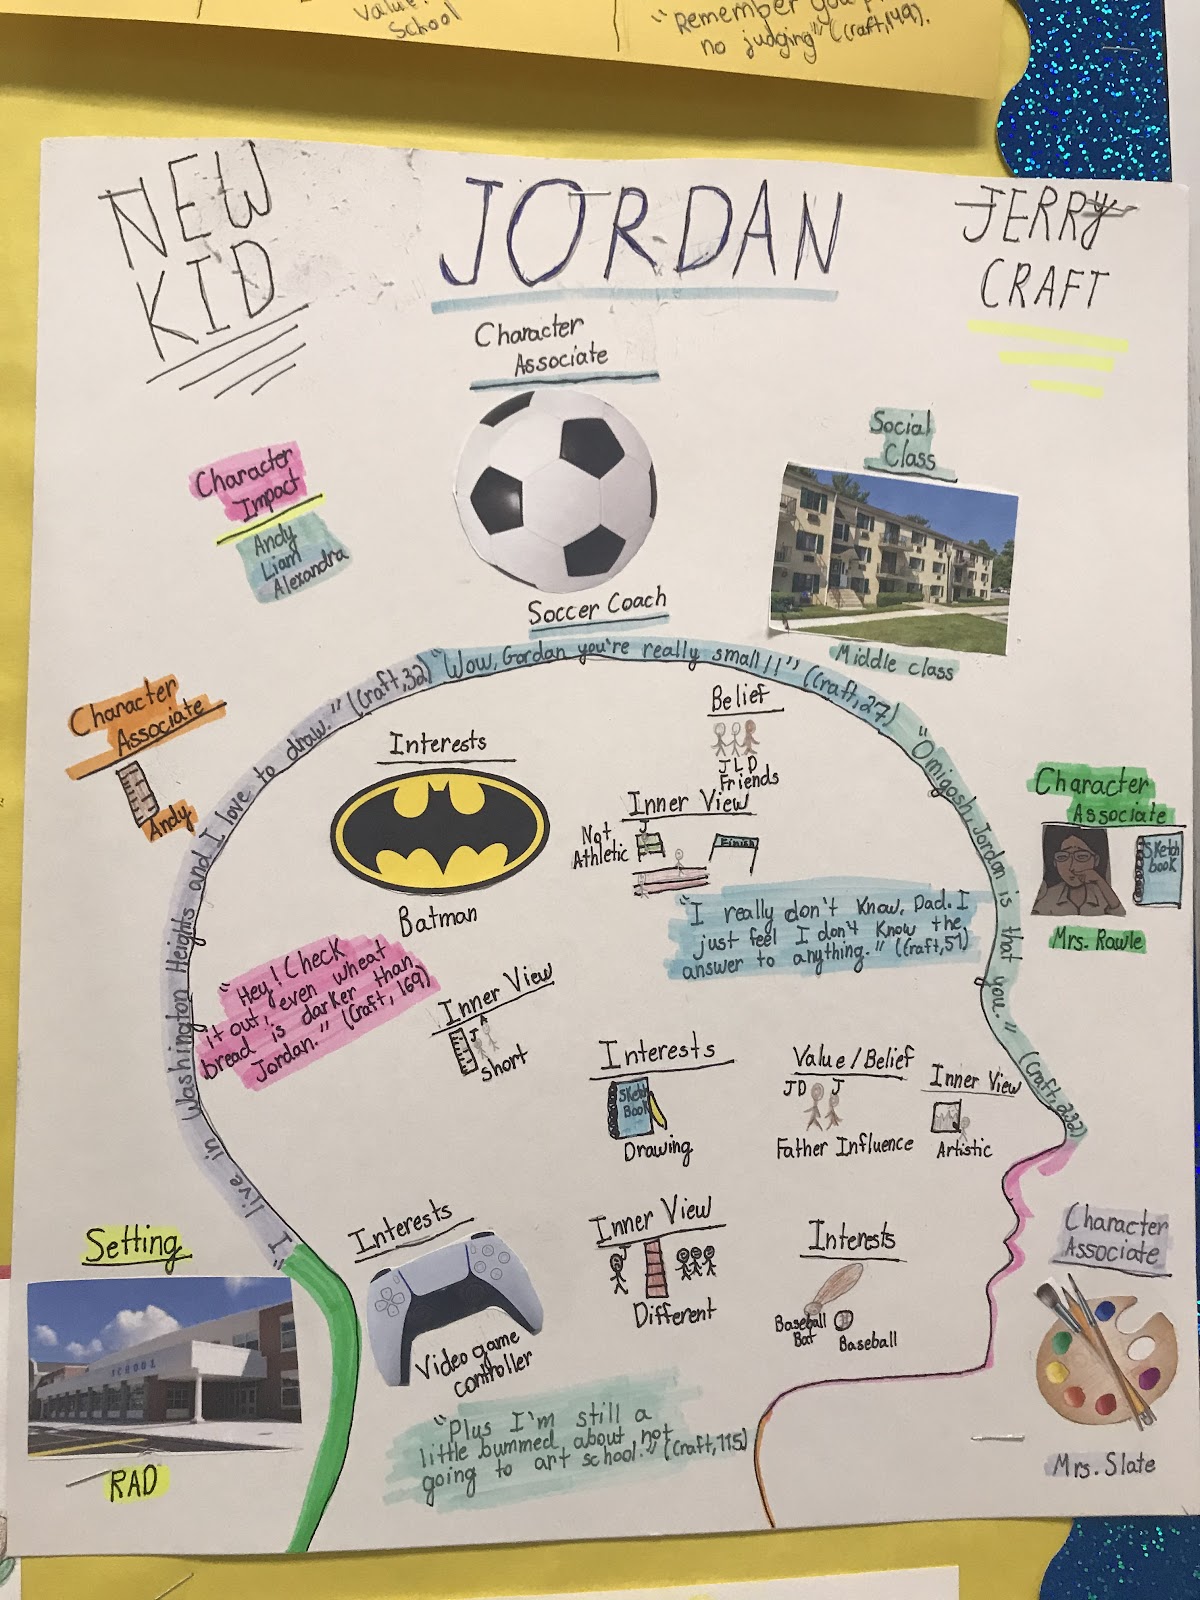 Value:
School
"Remember you
no judging" (Craft,149).
NEW
KID
JORDAN
JERRY
CRAFT
Character
Associate
Soccer Coach
Social
Class
Middle class
Character
Impact
Andy
Liam
Alexandra
Character
Associate
Andy
"I live in Washington Heights and I love to draw." (Craft,32)
"Wow, Gordan you're really small!!" (Craft,27)
"Omigosh, Jordan is that you." (Craft,232)
Interests
Batman
Belief
J L D
Friends
Inner View
Not
Athletic
J
Finish
"I really don't know, Dad. I
just feel I don't know the
answer to anything." (Craft,51)
Character
Associate
Sketch
book
Mrs. Rawle
"Hey! Check
it out, even wheat
bread is darker than
Jordan." (Craft, 169)
Inner View
J A
Short
Interests
Sketch
Book
Drawing
Value/Belief
JD J
Father Influence
Inner View
Artistic
Setting
SCHOOL
RAD
Interests
Video game
controller
Inner View
J
Different
Interests
Baseball
Bat
Baseball
Character
Associate
Mrs. Slate
"Plus I'm still a
little bummed about not
going to art school." (Craft,115)